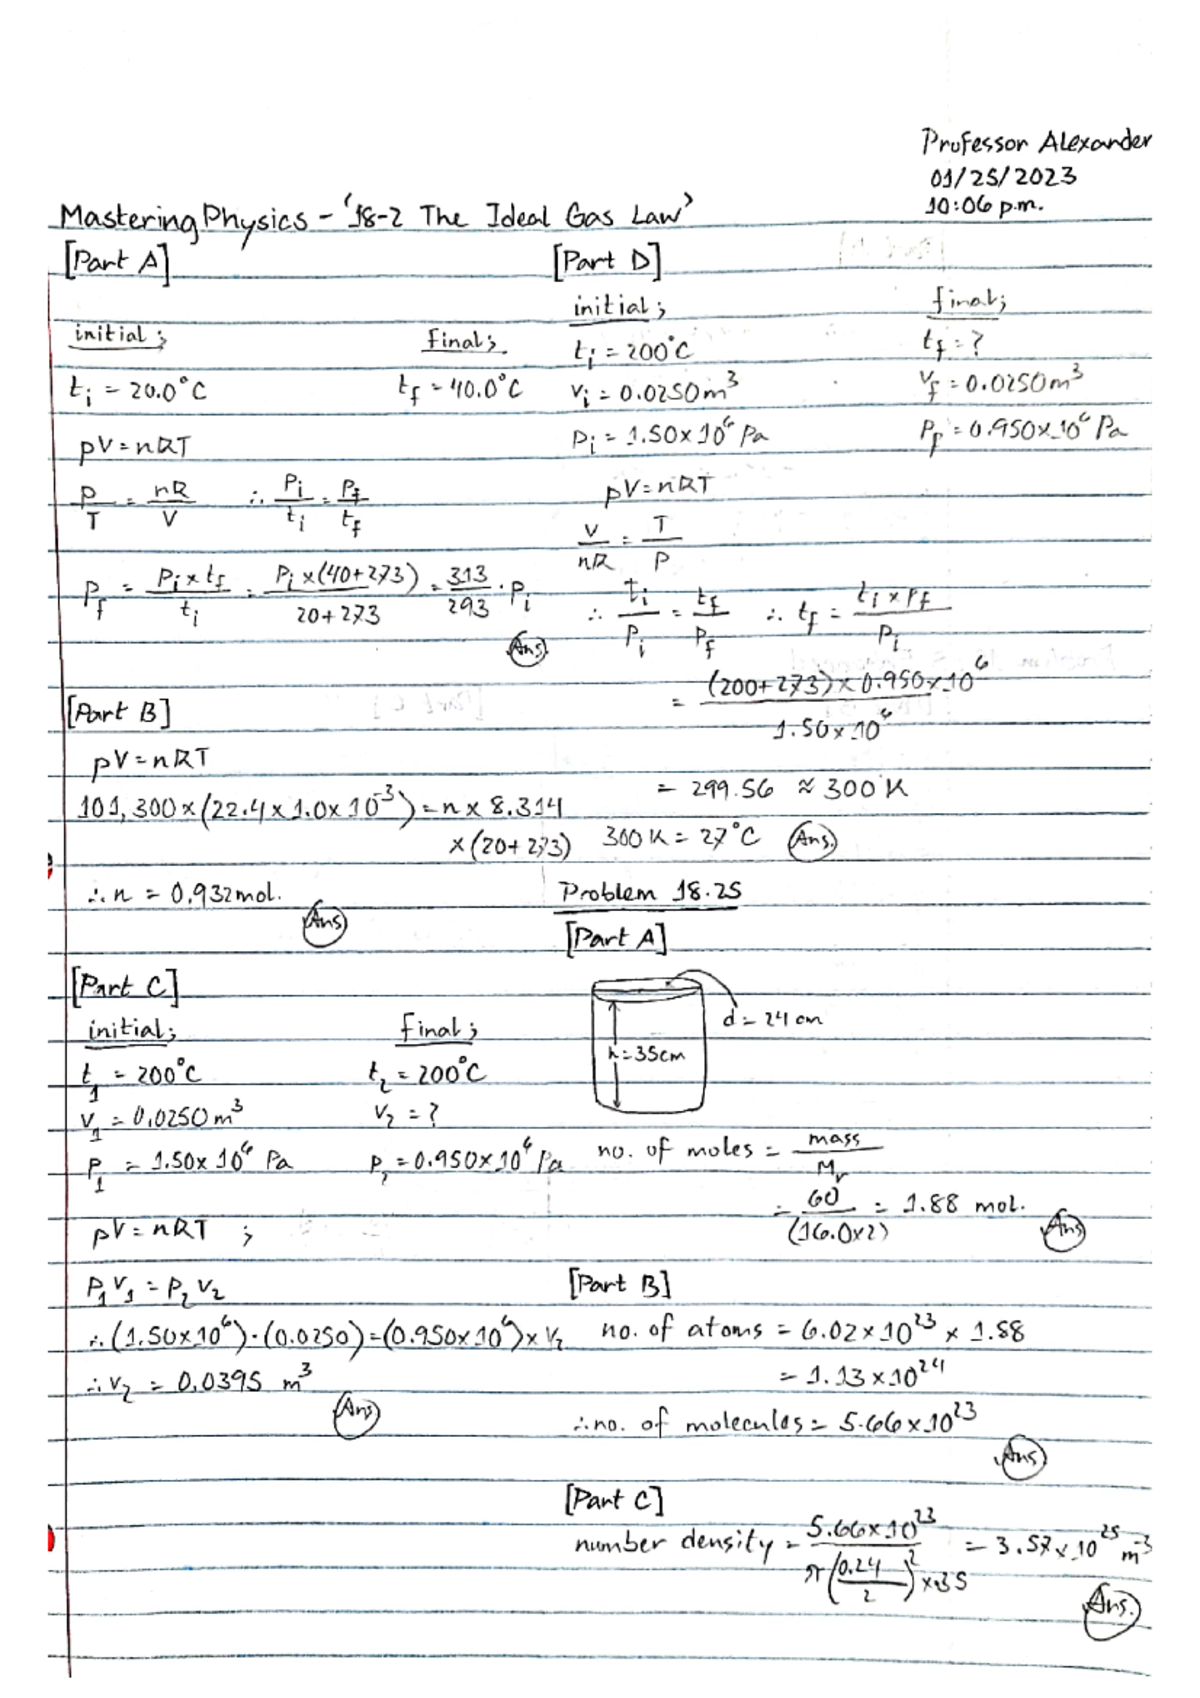 Professor Alexander
01/25/2023
10:06 p.m.
Mastering Physics - '18-2 The Ideal Gas Law'
[Part A]
initial; Final;
ti = 20.0°C tf = 40.0°C
pV = nRT
P/T = nR/V ∴ Pi/ti = Pf/tf
Pf = Pi x tf / ti = Pi x (40+273) / 20+273 = 313/293 · Pi
Ans
[Part B]
pV = nRT
101,300 x (22.4 x 1.0 x 10^-3) = n x 8.314
x (20+273)
∴ n = 0.932 mol.
Ans
[Part C]
initial; final;
t1 = 200°C t2 = 200°C
V1 = 0.0250 m³ V2 = ?
P1 = 1.50 x 10^6 Pa P2 = 0.950 x 10^6 Pa
pV = nRT ;
P1 V1 = P2 V2
∴ (1.50 x 10^6) · (0.0250) = (0.950 x 10^6) x V2
∴ V2 = 0.0395 m³
Ans
[Part D]
initial; final;
ti = 200°C tf = ?
Vi = 0.0250 m³ Vf = 0.0250 m³
Pi = 1.50 x 10^6 Pa Pf = 0.950 x 10^6 Pa
pV = nRT
V/nR = T/P
∴ ti/Pi = tf/Pf ∴ tf = ti x Pf / Pi
= (200+273) x 0.950 x 10^6 / 1.50 x 10^6
= 299.56 ≈ 300 K
300 K = 27°C Ans.
Problem 18.25
[Part A]
d = 24 cm
h = 35cm
no. of moles = mass / Mr
= 60 / (16.0x2) = 1.88 mol.
Ans
[Part B]
no. of atoms = 6.02 x 10^23 x 1.88
= 1.13 x 10^24
∴ no. of molecules = 5.66 x 10^23
Ans
[Part C]
number density = 5.66 x 10^23 / π (0.24/2)² x .35 = 3.57 x 10^25 m^-3
Ans.